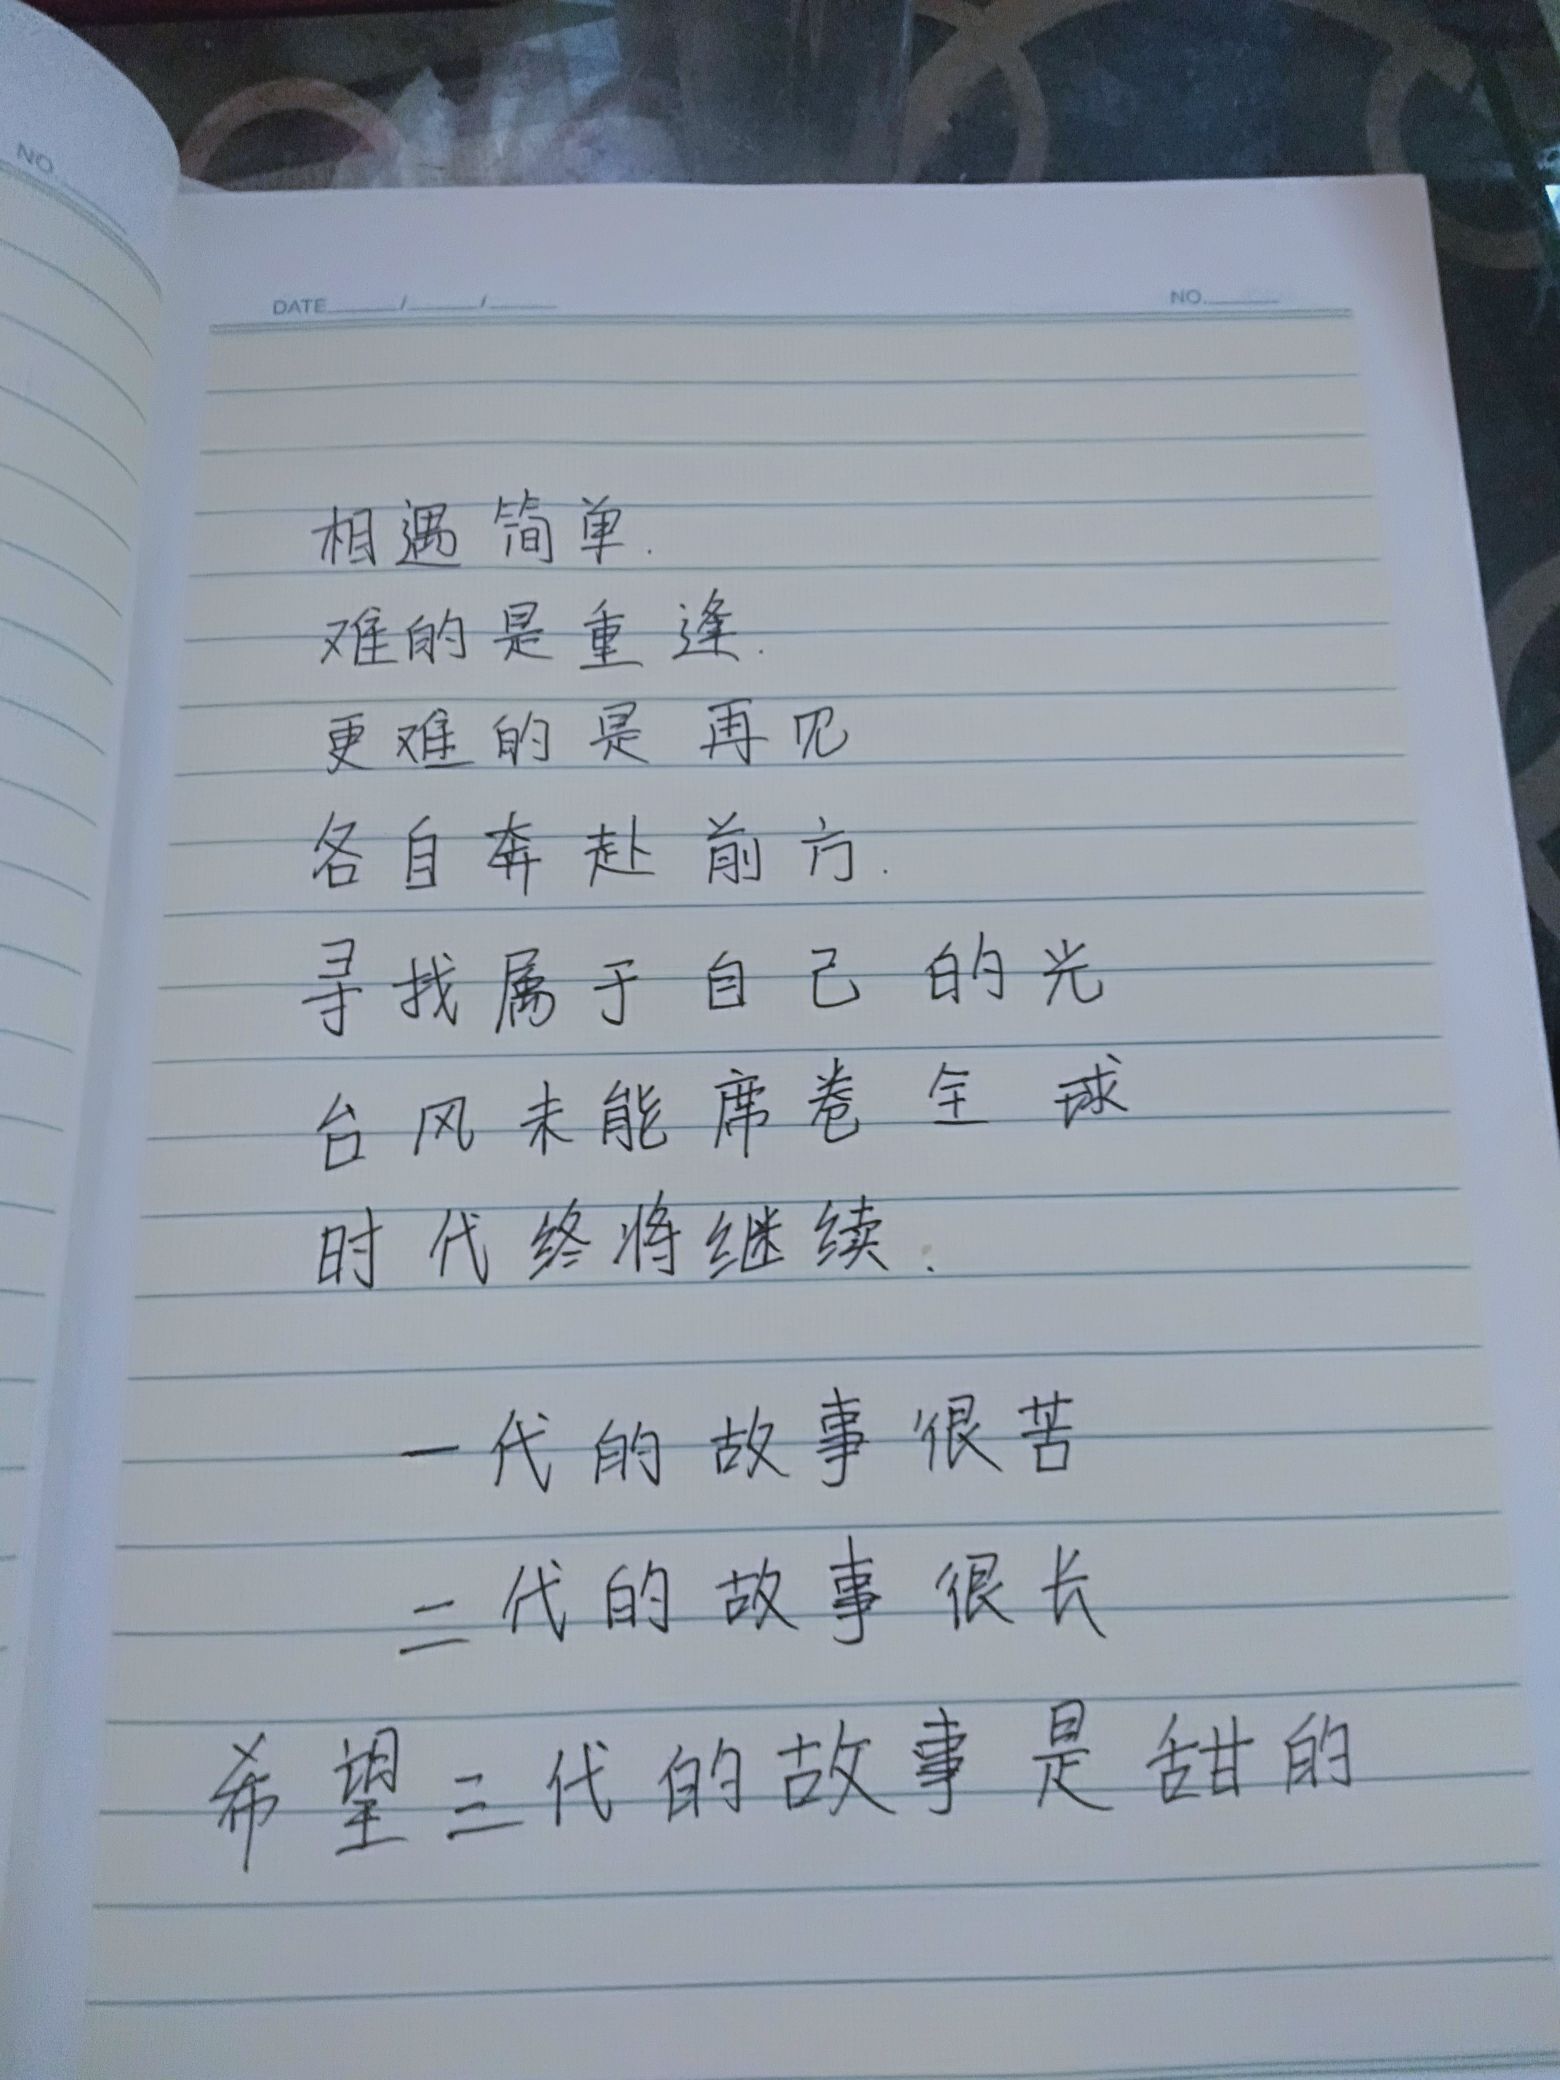 NO.
DATE / /
NO.
相遇简单.
难的是重逢.
更难的是再见
各自奔赴前方.
寻找属于自己的光
台风未能席卷全球
时代终将继续.
一代的故事很苦
二代的故事很长
希望三代的故事是甜的